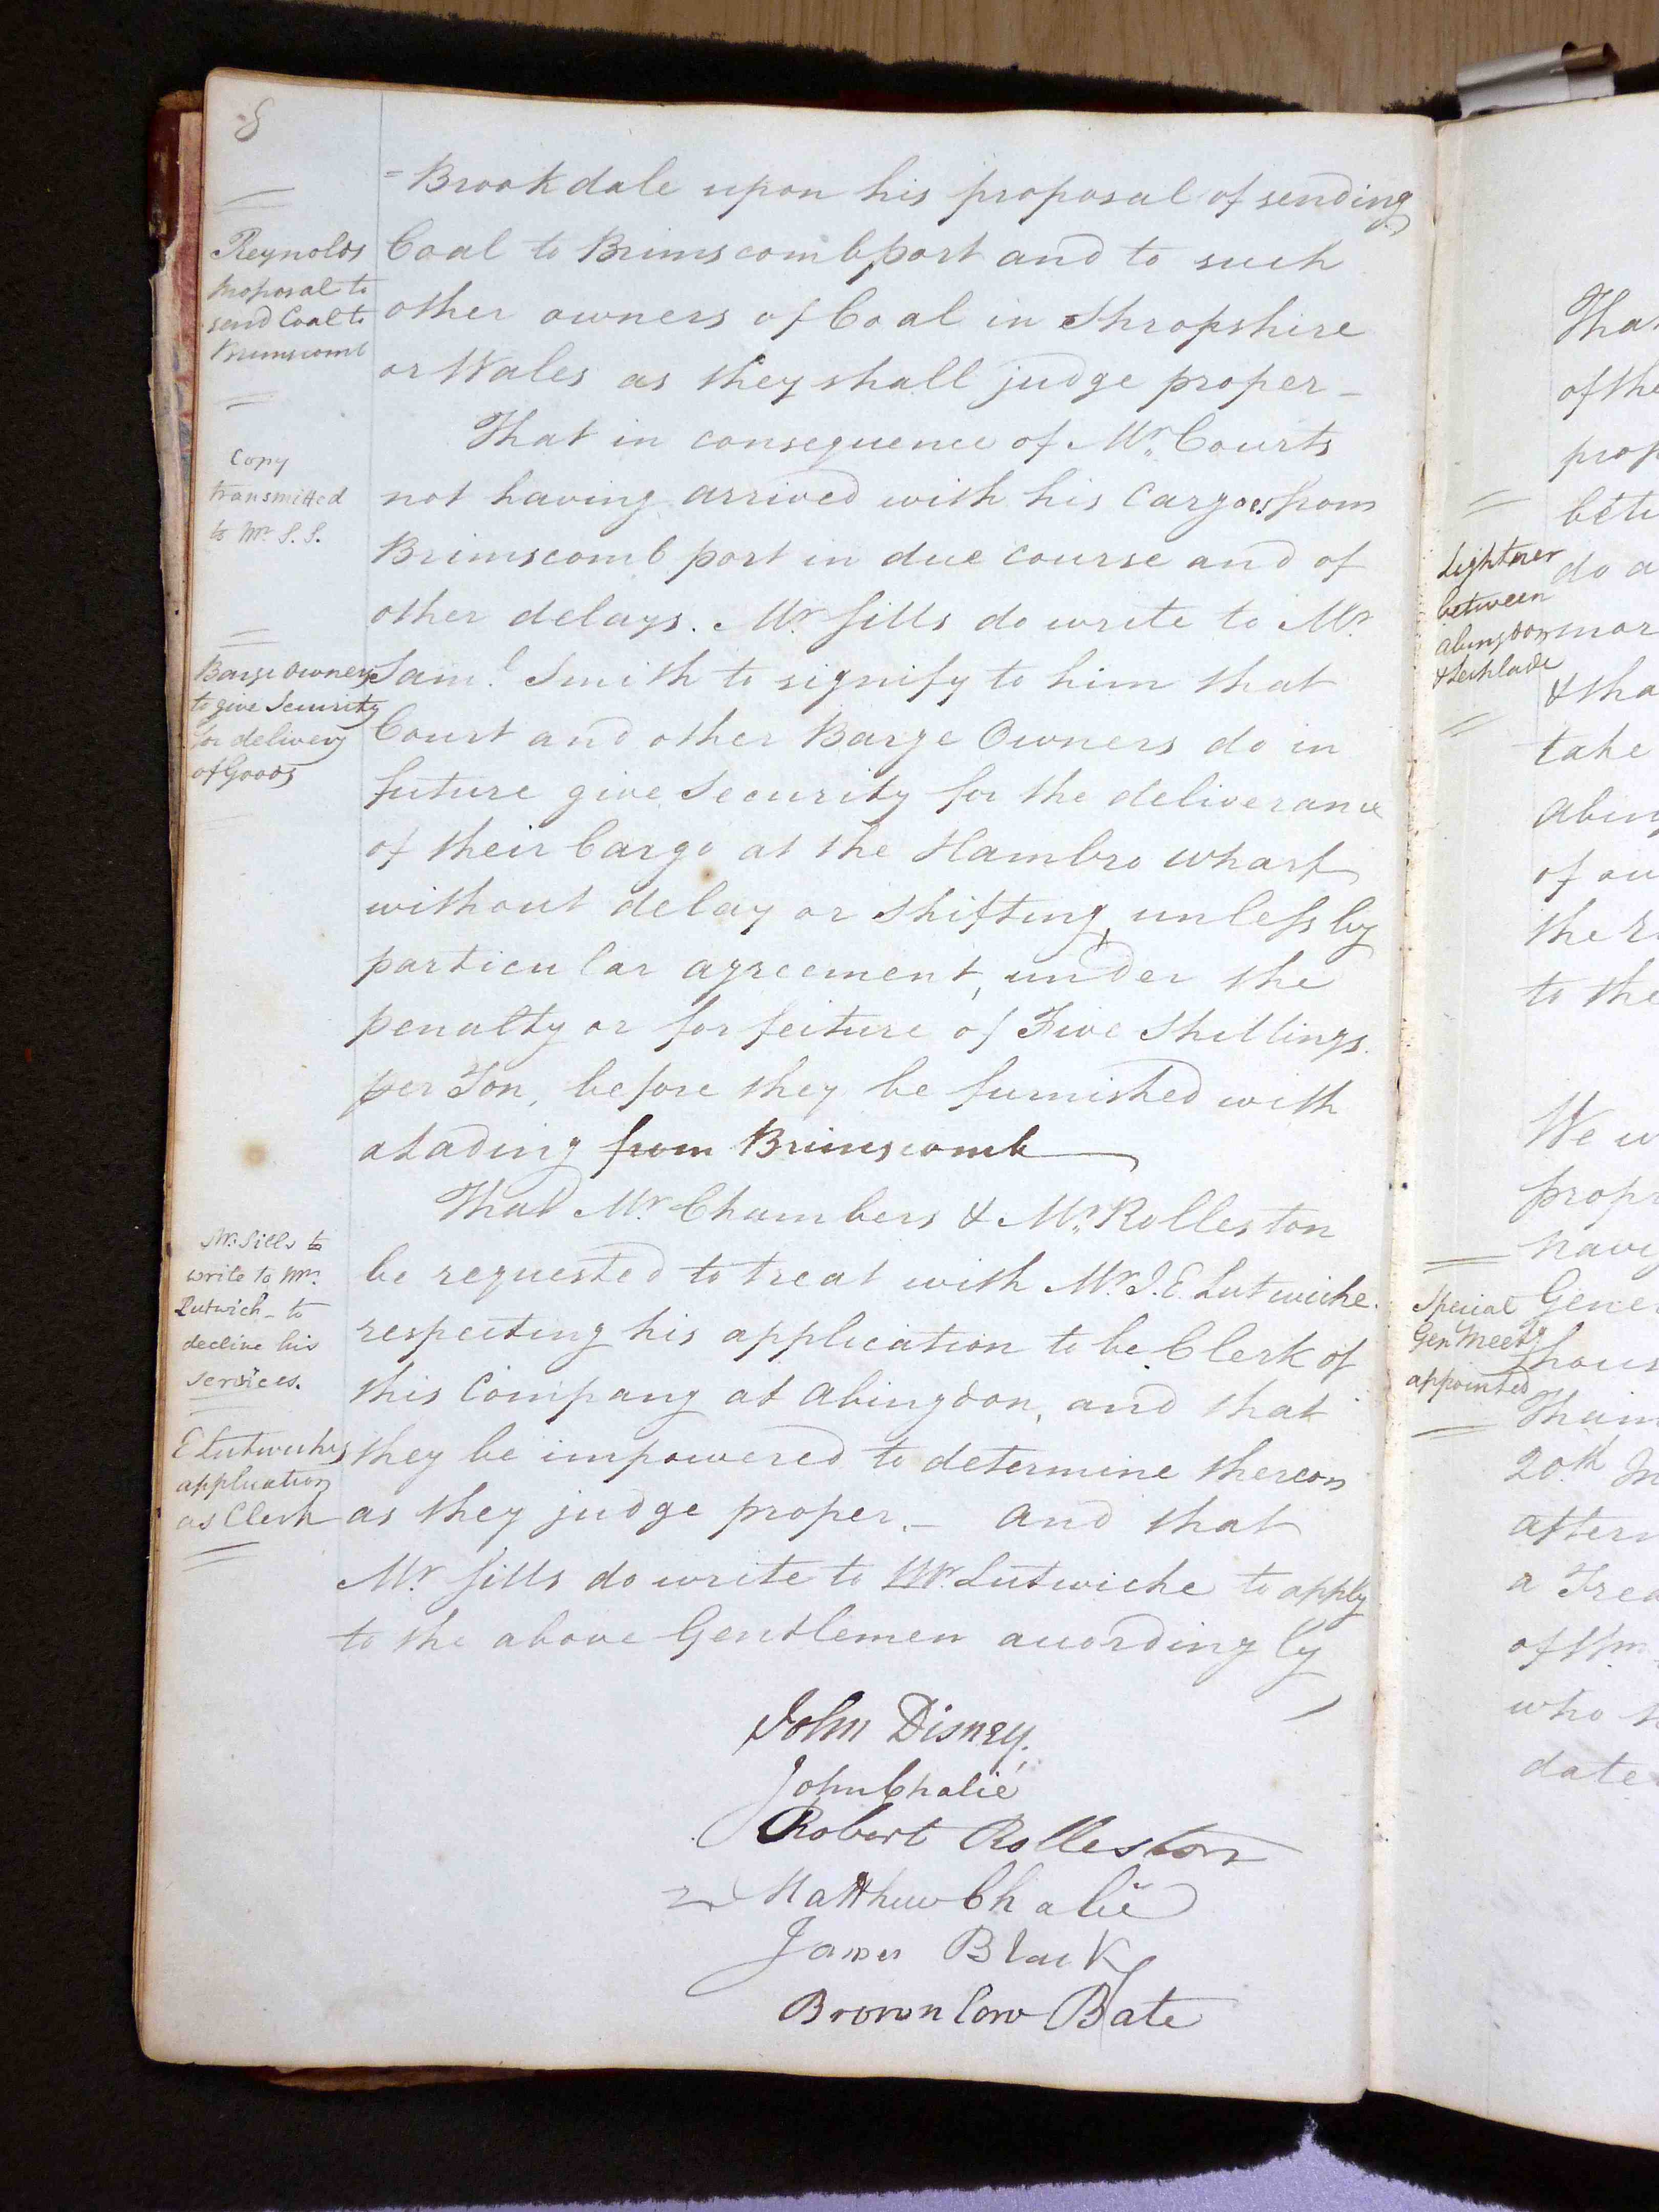 8
=Brookdale upon his proposal of sending
Coal to Brimscombport and to such
other owners of Coal in Shropshire
or Wales as they shall judge proper –
That in consequence of Mr. Courts
not having arrived with his Cargoes from
Brimscomb port in due course and of
other delays. Mr Sills do write to Mr.
Saml. Smith to signify to him that
Court and other Barge Owners do in
future give Security for the deliverance
of their Cargo at the Hambro wharf
without delay or shifting, unless by
particular agreement, under the
penalty or forfeiture of Five Shillings
per Ton, before they be furnished with
a Lading from Brimscomb
That Mr. Chambers & Mr. Rolleston
be requested to treat with Mr. J. E. Lutwiche
respecting his application to be Clerk of
this Company at Abingdon, and that
they be impowered to determine thereon
as they judge proper. – and that
Mr Sills do write to Mr. Lutwiche to apply
to the above Gentlemen accordingly
John Disney.
John Chalié
Robert Rolleston
Matthew Chalié
James Black
Brownlow Bate
Reynolds
proposal to
send Coal to
Brimscomb
Copy
transmitted
to Mr. S. S.
Barge owners
to give Security
for delivery
of Goods
Mr. Sills to
write to Mr.
Lutwich – to
decline his
services.
E Lutwiches
application
as Clerk
Tha
of the
prop
betw
do a
mor
& tha
take
Abing
of ou
the
to the
We w
propr
navig
Gener
hous
Tham
20th In
aftern
a Trea
of
who
date
Lightner
between
Abingdon
& Lechlade
Special
Gen Meetg
appointed